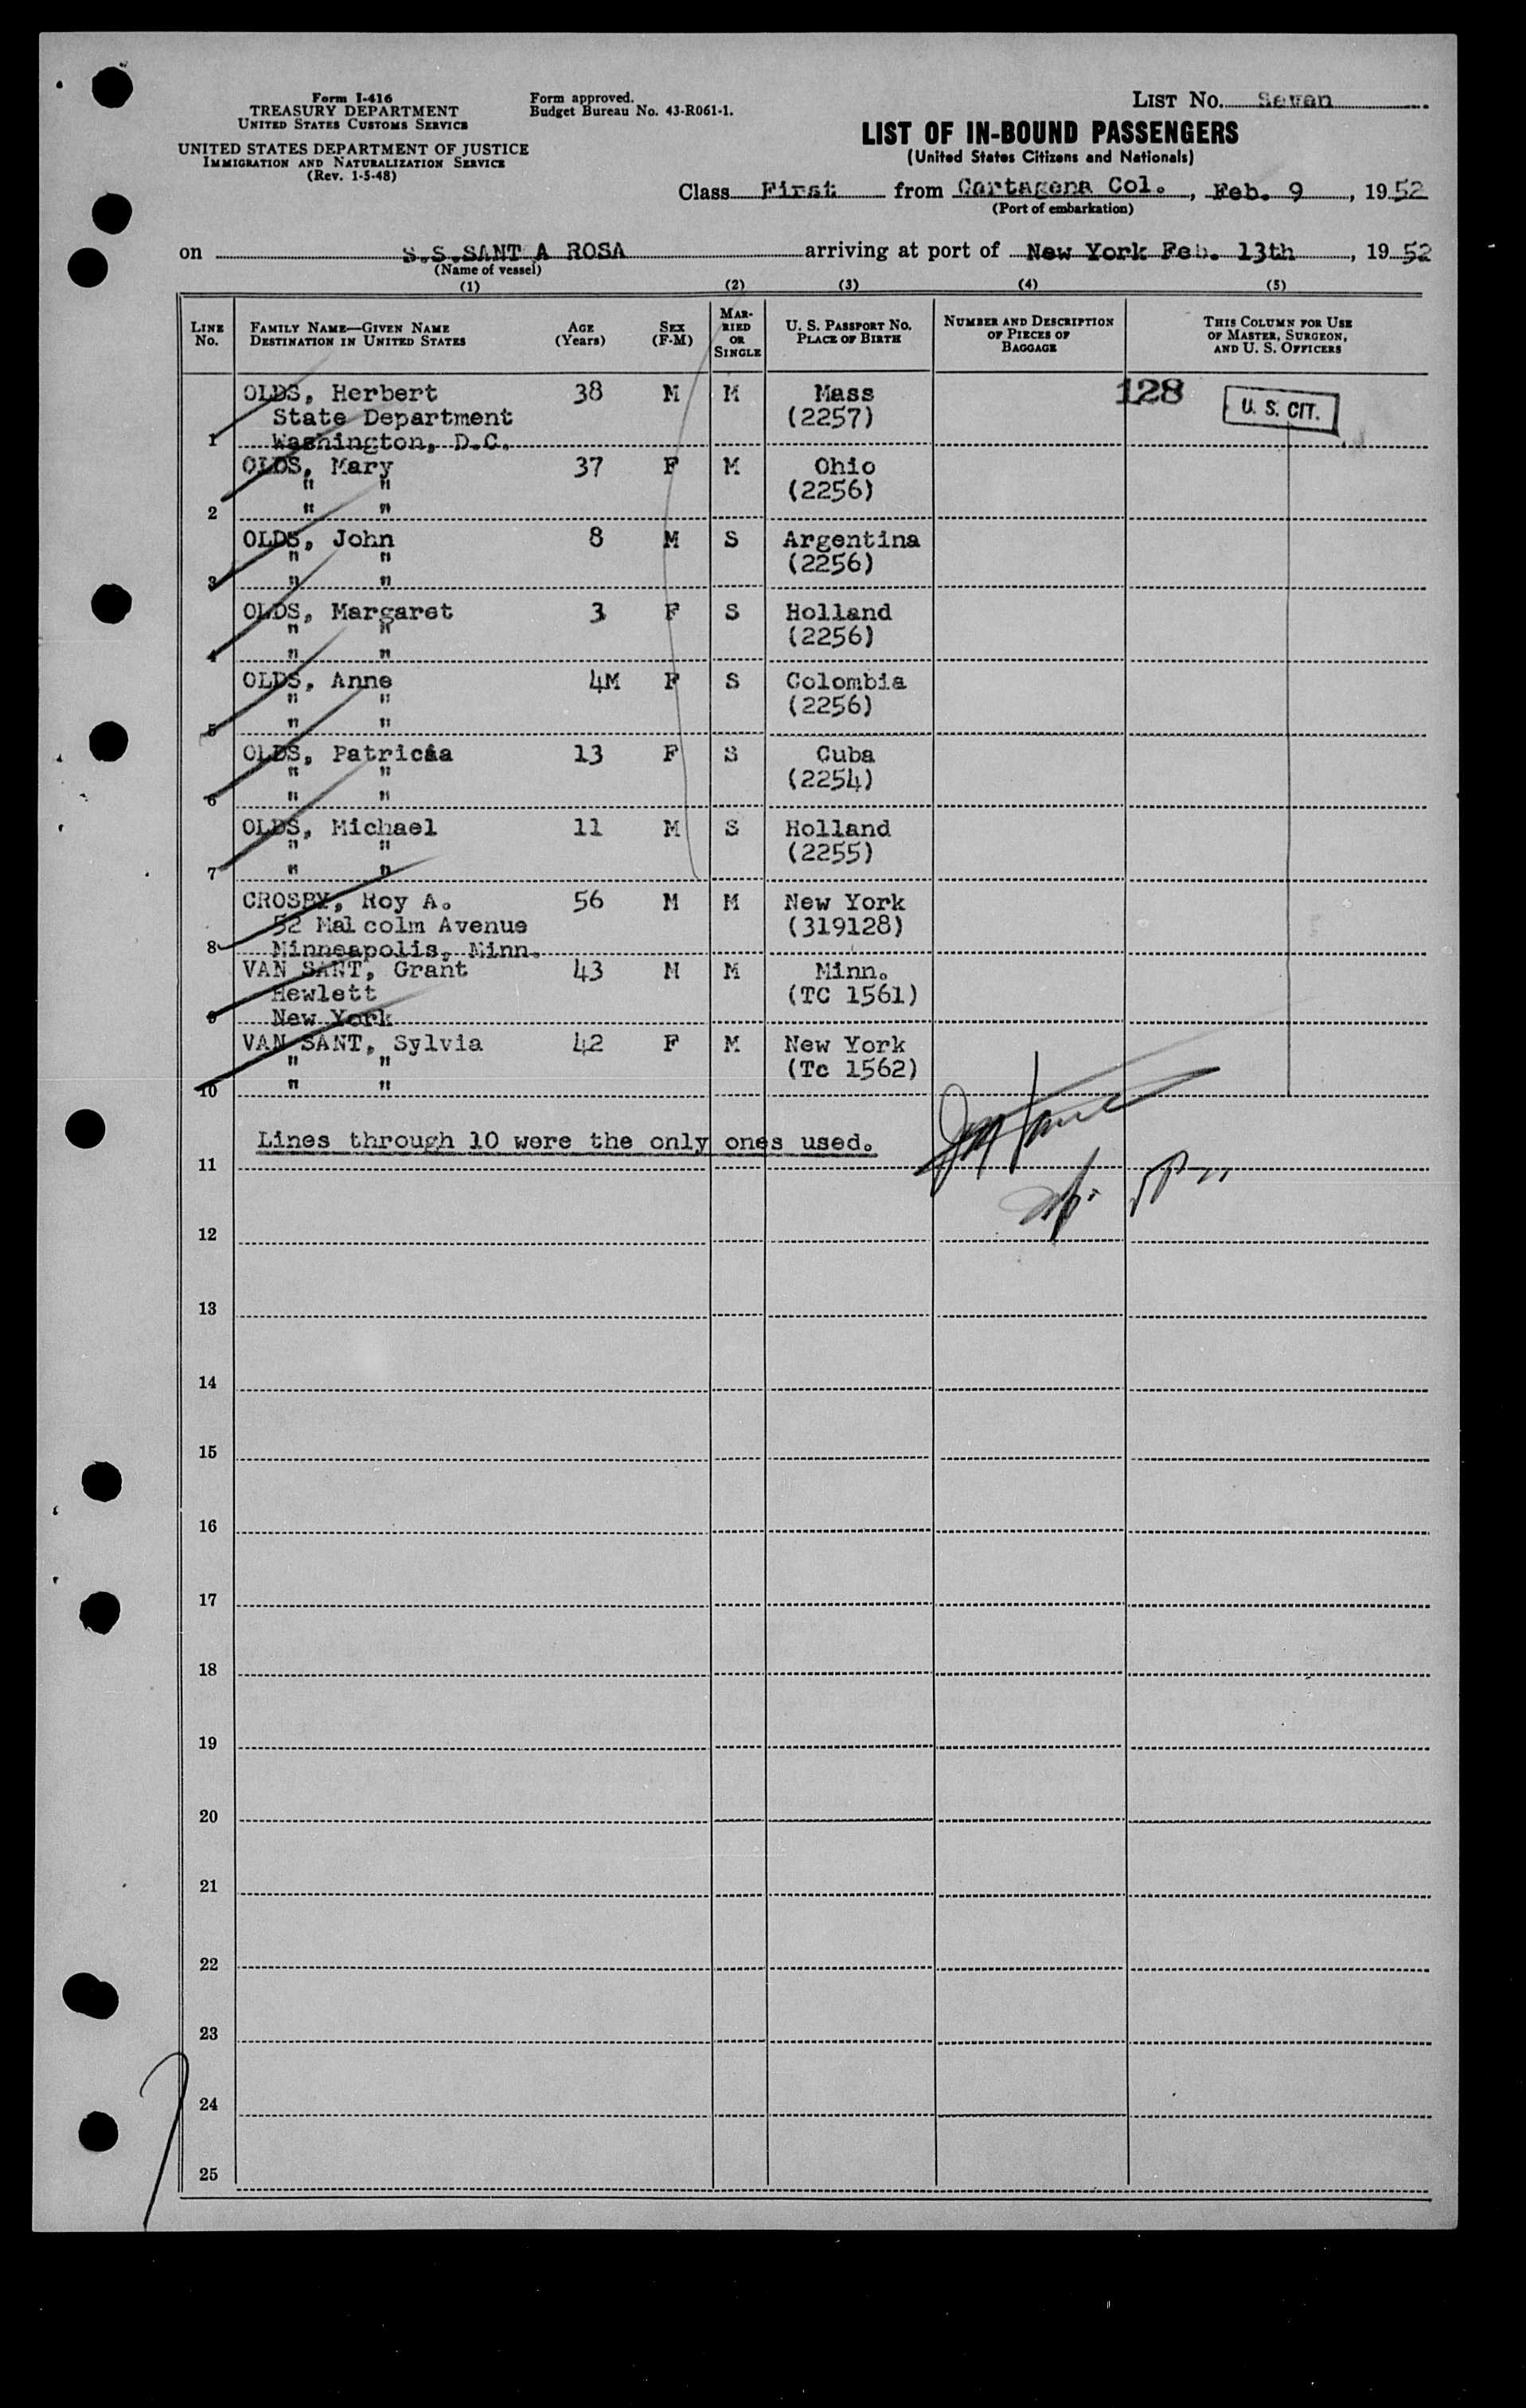 Form I-416
TREASURY DEPARTMENT
UNITED STATES CUSTOMS SERVICE
UNITED STATES DEPARTMENT OF JUSTICE
IMMIGRATION AND NATURALIZATION SERVICE
(Rev. 1-5-48)
Form approved.
Budget Bureau No. 43-R061-1.
LIST NO. Seven
LIST OF IN-BOUND PASSENGERS
(United States Citizens and Nationals)
Class First from Cartagena Col., Feb. 9, 1952
(Port of embarkation)
on S.S.SANT A ROSA arriving at port of New York Feb. 13th, 1952
(Name of vessel)
(1) (2) (3) (4) (5)
LINE NO. FAMILY NAME—GIVEN NAME DESTINATION IN UNITED STATES AGE (Years) SEX (F-M) MARRIED OR SINGLE U. S. PASSPORT NO. PLACE OF BIRTH NUMBER AND DESCRIPTION OF PIECES OF BAGGAGE THIS COLUMN FOR USE OF MASTER, SURGEON, AND U. S. OFFICERS
OLDS, Herbert 38 M M Mass 128 U. S. CIT.
State Department (2257)
1 Washington, D.C.
OLDS, Mary 37 F M Ohio
" " (2256)
2 " "
OLDS, John 8 M S Argentina
" " (2256)
3 " "
OLDS, Margaret 3 F S Holland
" " (2256)
4 " "
OLDS, Anne 4M F S Colombia
" " (2256)
5 " "
OLDS, Patricia 13 F S Cuba
" " (2254)
6 " "
OLDS, Michael 11 M S Holland
" " (2255)
7 " "
CROSBY, Roy A. 56 M M New York
52 Malcolm Avenue (319128)
8 Minneapolis, Minn.
VAN SANT, Grant 43 M M Minn.
Hewlett (TC 1561)
9 New York
VAN SANT, Sylvia 42 F M New York
" " (Tc 1562)
10 " "
Lines through 10 were the only ones used.
11
12
13
14
15
16
17
18
19
20
21
22
23
24
25